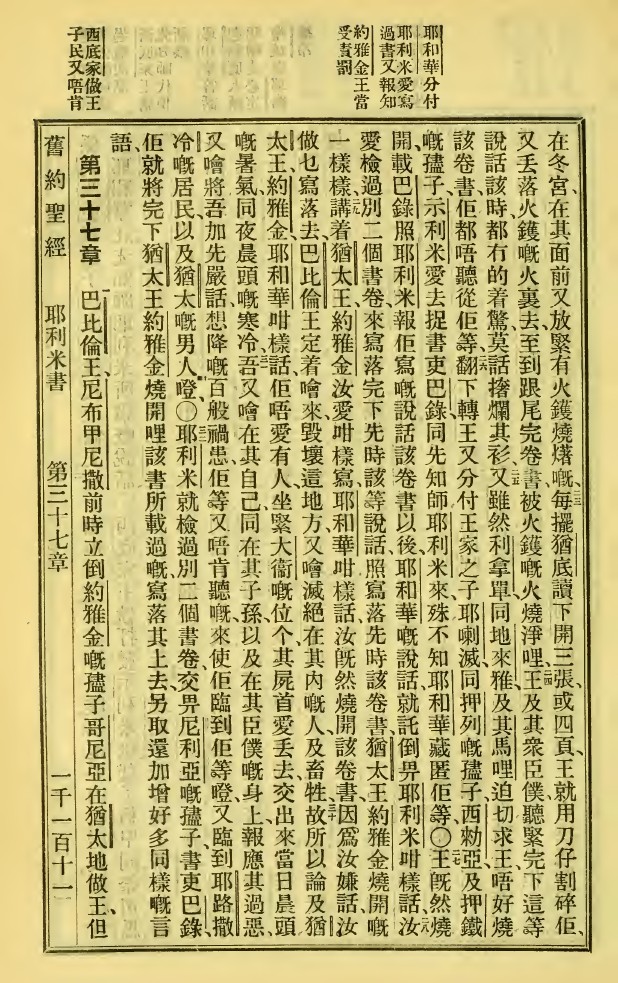 耶和華分付
耶利米愛寫
過書又報知
約雅金王當
受責罰
西底家做王
子民又唔肯
在冬宮、在其面前又放緊有火鑊燒𤏸嘅、每擺猶底讀下開三張、或四頁、王就用刀仔割碎佢、
又丟落火鑊嘅火裏去、至到跟尾完卷書被火鑊嘅火燒淨哩、王及其衆臣僕聽緊完下這等
說話、該時都冇的着驚、莫話撦爛其衫、又雖然利拿單、同地來雅、及其馬哩迫切求王、唔好燒
該卷書、佢都唔聽從佢等、翻下轉王又分付王家之子耶喇滅、同押列嘅㜽子西勑亞、及押鐵
嘅㜽子示利米愛去捉書吏巴錄、同先知師耶利米來、殊不知耶和華藏匿佢等〇王旣然燒
開載巴錄照耶利米報佢寫嘅說話該卷書以後、耶和華嘅說話就託倒畀耶利米咁樣話、汝
愛檢過別二個書卷、來寫落完下先時該等說話、照寫落先時該卷書、猶太王約雅金燒開嘅
一樣樣、講着猶太王約雅金、汝愛咁樣寫、耶和華咁樣話、汝旣然燒開該卷書、因爲汝嫌話、汝
做乜寫落去、巴比倫王定着噲來毀壞這地方、又噲滅絕在其內嘅人、及畜牲、故所以論及猶
太王約雅金、耶和華咁樣話、佢唔愛有人坐緊大衞嘅位、个其屍首愛丟去、交出來當日晨頭
嘅暑氣、同夜晨頭嘅寒冷、吾又噲在其自己、同在其子孫、以及在其臣僕嘅身上報應其過惡、
又噲將吾加先嚴話想降嘅百般禍患、佢等又唔肯聽嘅、來使佢臨到佢等噔、又臨到耶路撒
冷嘅居民、以及猶太嘅男人噔、〇耶利米就檢過別二個書卷、交畀尼利亞嘅㜽子書吏巴錄、
佢就將完下猶太王約雅金燒開哩該書所載過嘅、寫落其上去、另取還加增好多同樣嘅言
語、
第三十七章 巴比倫王尼布甲尼撒前時立倒約雅金嘅㜽子哥尼亞、在猶太地做王、但
舊約聖經 耶利米書 第三十七章 一千一百十一